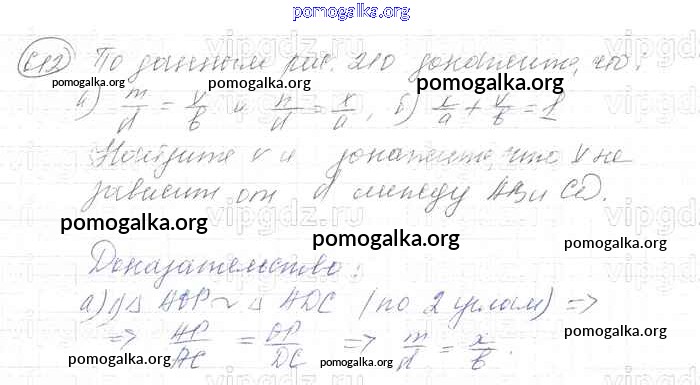 pomogalka.org
612) По данным рис. 210 докажите, что:
pomogalka.org pomogalka.org pomogalka.org
а) m/d = x/b и n/d = x/a, б) x/a + x/b = 1
Найдите x и докажите, что x не
зависит от d между AB и CD.
pomogalka.org pomogalka.org pomogalka.org
Доказательство:
а) 1) △ AOP ~ △ ADC (по 2 углам) =>
pomogalka.org
=> AP/AC = OP/DC => m/d = x/b.
pomogalka.org pomogalka.org pomogalka.org